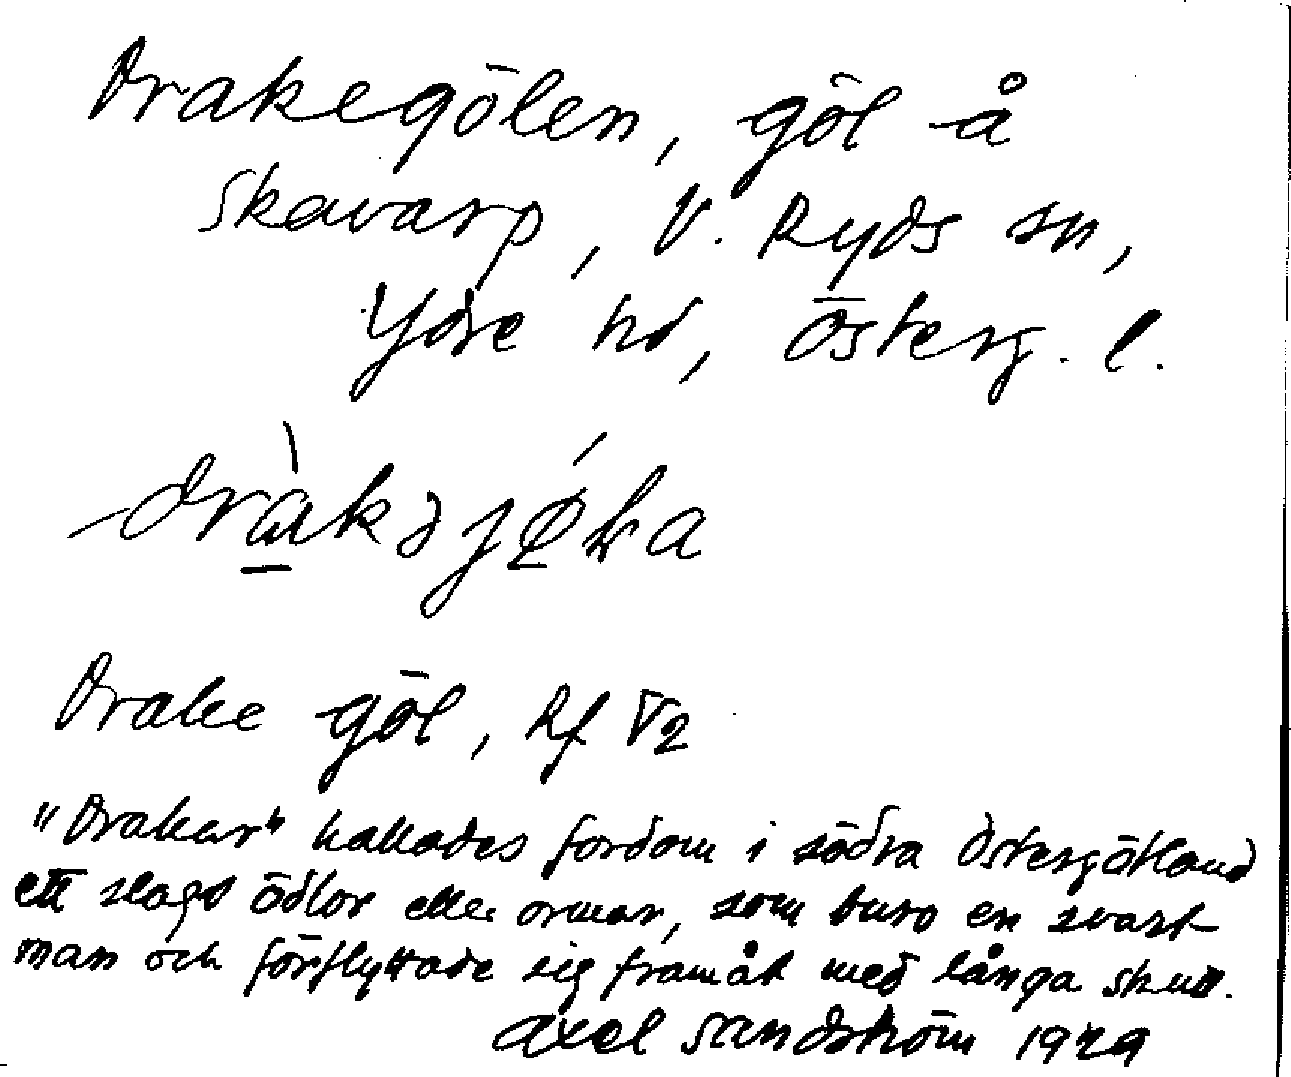 Drakegölen, göl å
Skavarp, V. Ryds sn,
Ydre hd, Österg. l.
Drake göl, Rf V2
"Drakar" kallades fordom i södra Östergötland
ett slags ödlor eller ormar, som buro en svart
man och förflyttade sig framåt med långa skutt.
Axel Sandström 1929